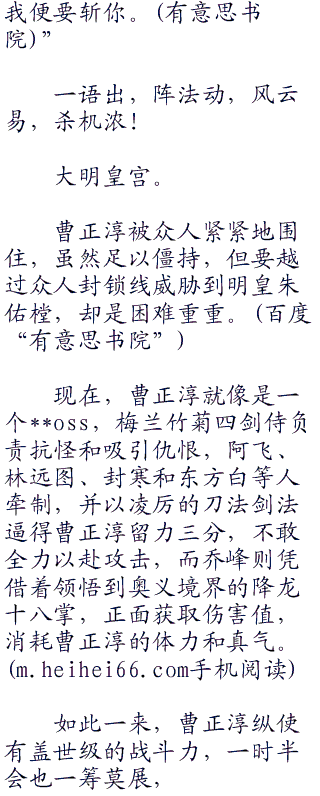 我便要斩你。(有意思书
院)”
一语出，阵法动，风云
易，杀机浓！
大明皇宫。
曹正淳被众人紧紧地围
住，虽然足以僵持，但要越
过众人封锁线威胁到明皇朱
佑樘，却是困难重重。(百度
“有意思书院”)
现在，曹正淳就像是一
个**oss，梅兰竹菊四剑侍负
责抗怪和吸引仇恨，阿飞、
林远图、封寒和东方白等人
牵制，并以凌厉的刀法剑法
逼得曹正淳留力三分，不敢
全力以赴攻击，而乔峰则凭
借着领悟到奥义境界的降龙
十八掌，正面获取伤害值，
消耗曹正淳的体力和真气。
(m.heihei66.com手机阅读)
如此一来，曹正淳纵使
有盖世级的战斗力，一时半
会也一筹莫展，